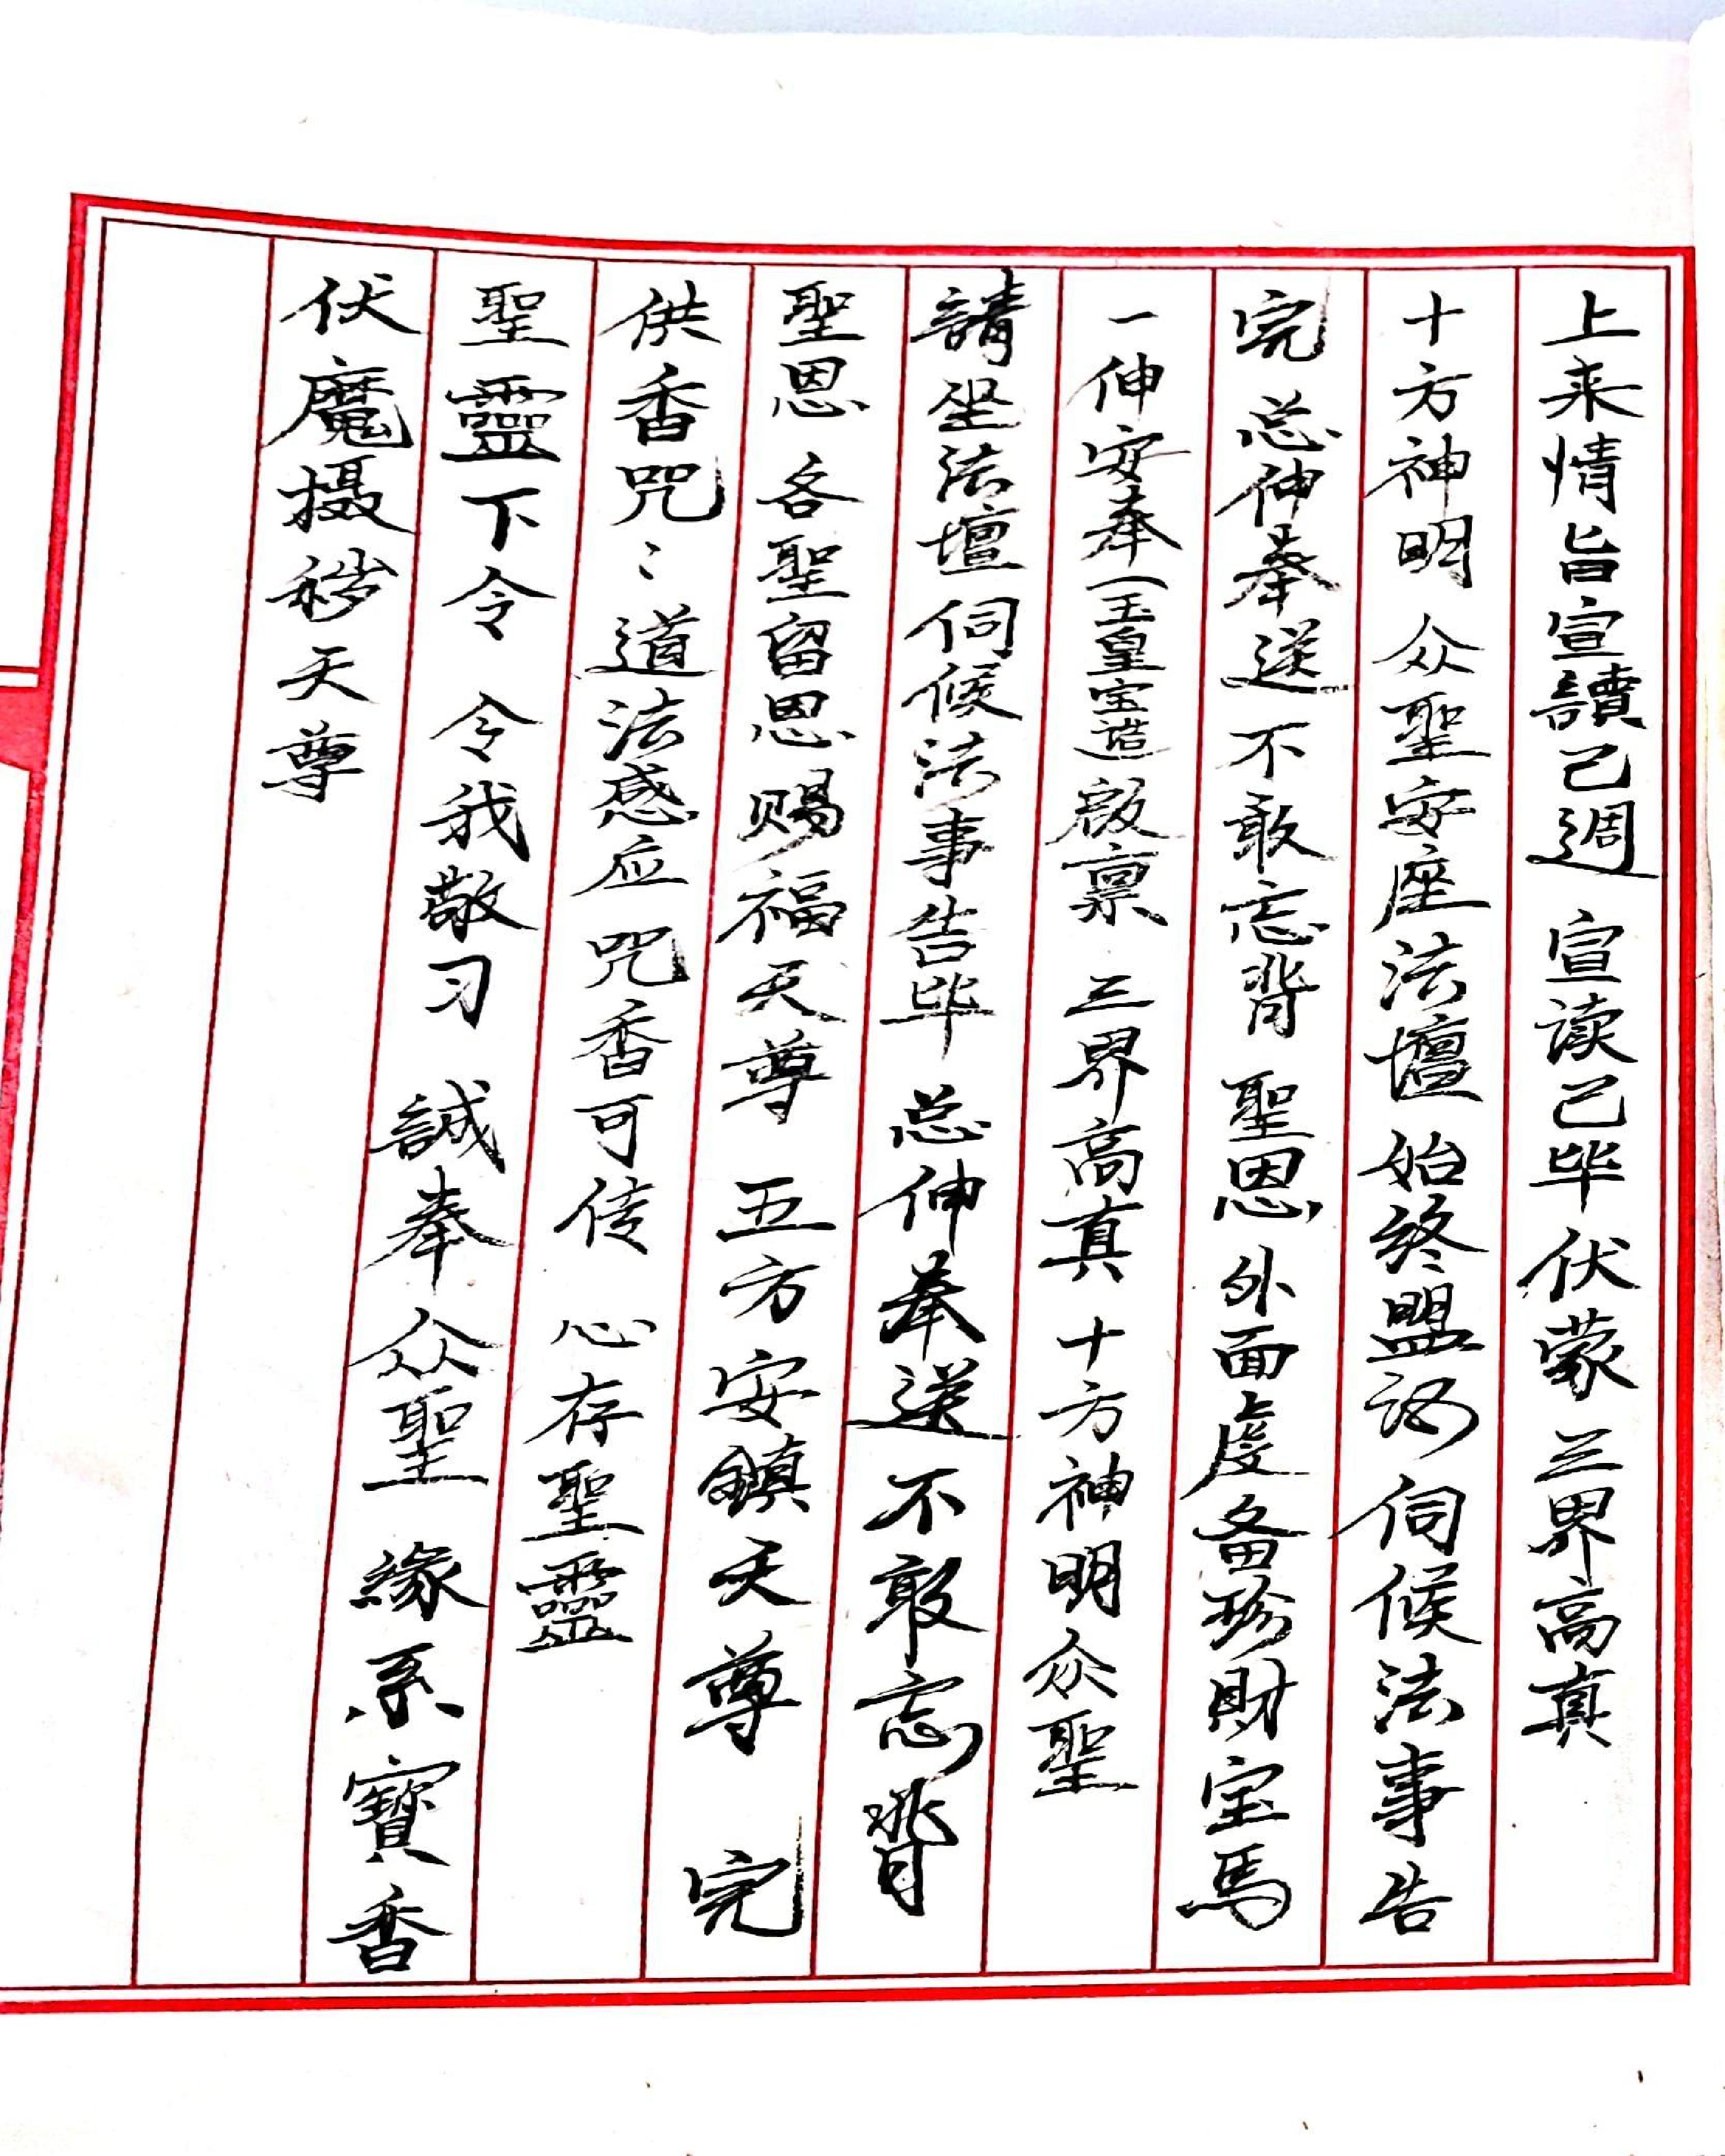 上来情旨宣讀己週 宣读己毕伏蒙三界高真
十方神明众聖安座法壇始终盟 伺候法事告
完 总伸奉送不敢忘背 聖恩外面虔备珍財宝馬
一伸安奉(玉皇宝造)啟禀 三界高真十方神明众聖
請坐法壇伺候法事告毕 总伸奉送不敢忘背
聖恩 各聖留恩赐福天尊 五方安鎮天尊 完
供香咒:道法感应 咒香可传 心存聖靈
聖靈下令 令我敬习 誠奉众聖 緣系寶香
伏魔摄秽天尊